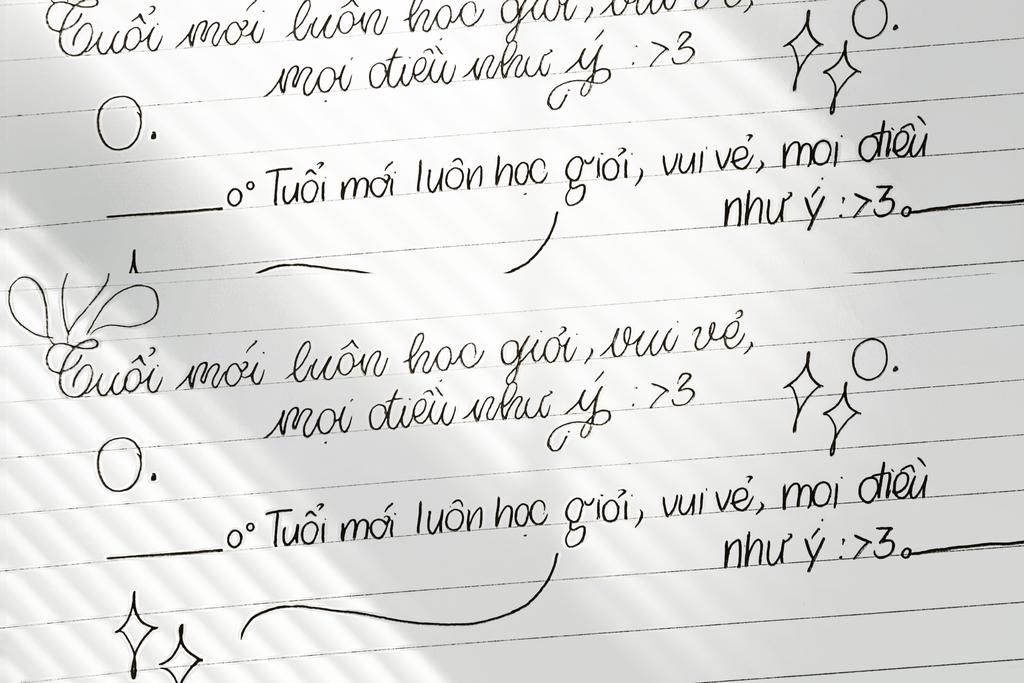 Tuổi mới luôn học giỏi, vui vẻ,
mọi điều như ý :>3
Tuổi mới luôn học giỏi, vui vẻ, mọi điều
như ý :>3
Tuổi mới luôn học giỏi, vui vẻ,
mọi điều như ý :>3
Tuổi mới luôn học giỏi, vui vẻ, mọi điều
như ý :>3